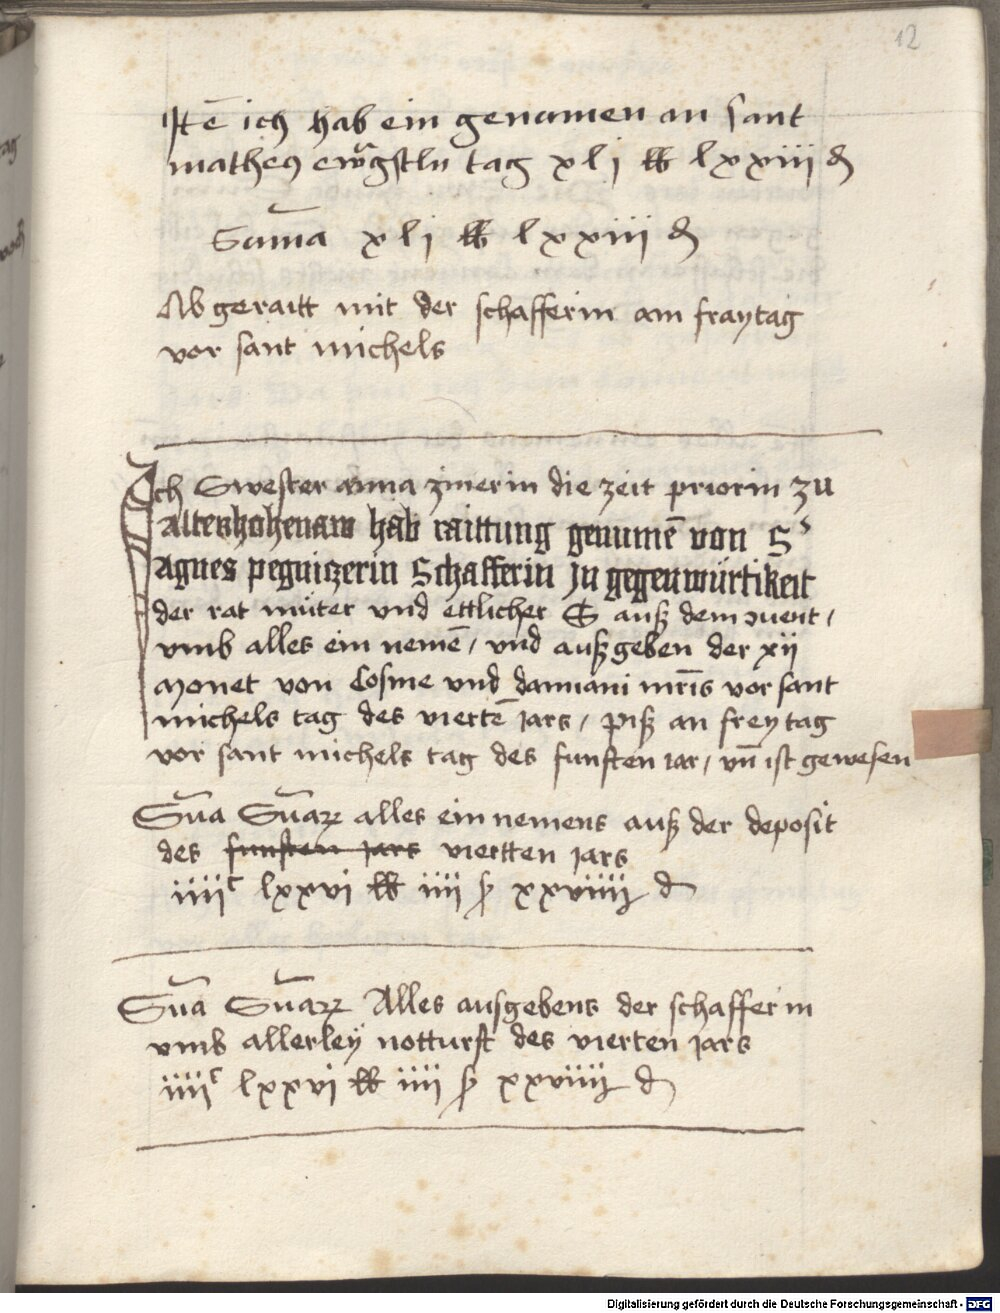 12
Itē ich hab ein genomen an sant
matheus ewāgstln tag xlj ℔ lxxiiij ₰
Sum̄a xlj ℔ lxxiiij ₰
Ab geraitt mit der schafferin am fraytag
vor sant michels
Ich Swester anna zinerin die zeit priorin zu
Altenhohenaw hab raittung genumē von Sʳ
Agnes pegnizerin Schafferin Jn gegenwürtikeit
der rat muter vnd ettlicher S auß dem ↄuent /
vmb alles ein nemē / vnd außgeben der xij
Monet von Cosme vnd damiani mr̄is vor sant
michels tag des viertē Jars / piß an freytag
vor sant michels tag des funften iar / vn̄ ist gewesen
Sūa Sūarꝝ alles ein nemens auß der deposit
des funften Jars viertten Jars
iiijᶜ lxxvj ℔ iiij ẞ xxviiij ₰
Sūa Sūarꝝ Alles ausgebens der schafferin
vmb allerley notturft des vierten Jars
iiijᶜ lxxvj ℔ iiij ẞ xxviiij ₰
Digitalisierung gefördert durch die Deutsche Forschungsgemeinschaft - DFG